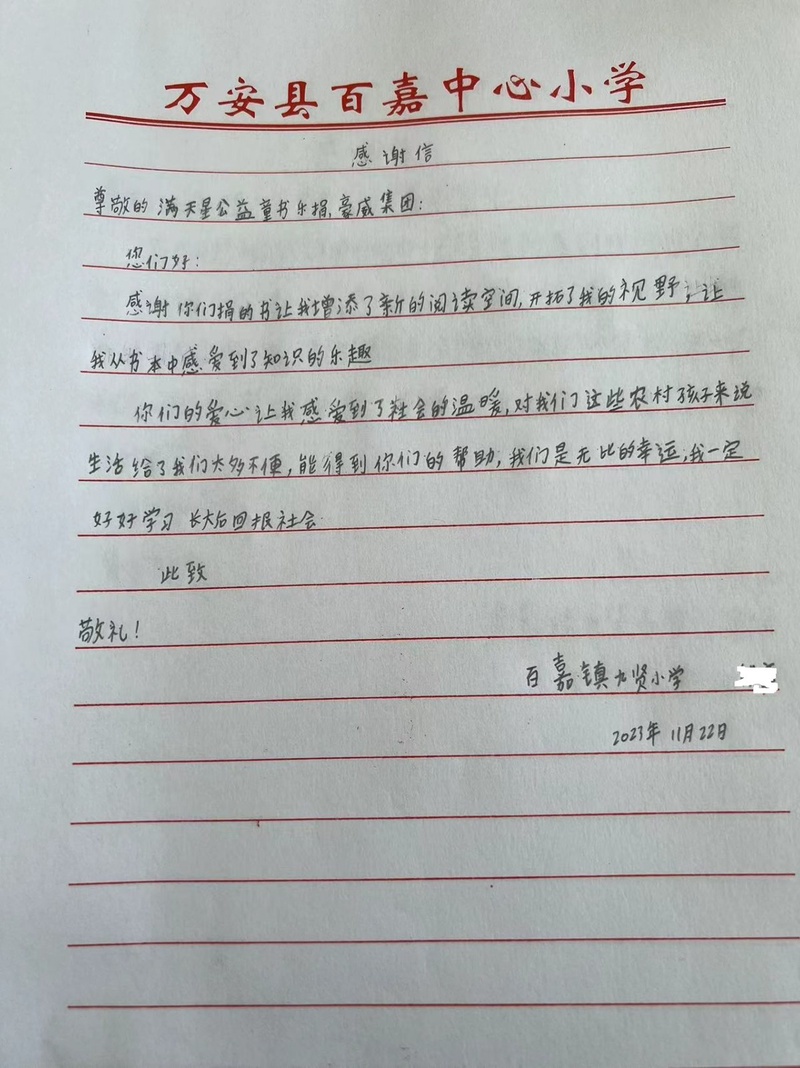 万安县百嘉中心小学
感谢信
尊敬的满天星公益童书乐捐,豪威集团:
您们好:
感谢你们捐的书让我增添了新的阅读空间,开拓了我的视野;让
我从书本中感爱到了知识的乐趣
你们的爱心让我感爱到了社会的温暖,对我们这些农村孩子来说
生活给了我们太多不便,能得到你们的帮助,我们是无比的幸运,我一定
好好学习 长大后回报社会.
此致
敬礼!
百嘉镇九贤小学
2023年11月22日